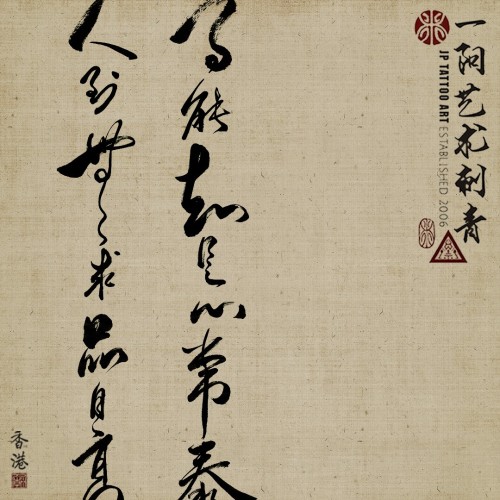 一阳艺术刺青
JP TATTOO ART ESTABLISHED 2006
事能知足心常泰
人到無求品自高
香港